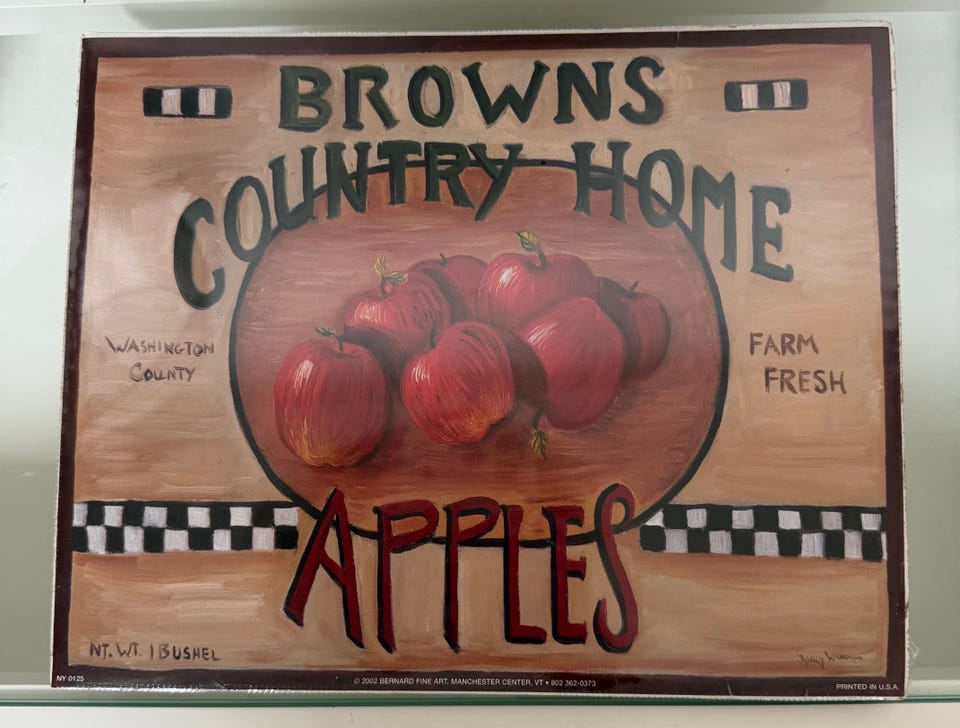 BROWNS
COUNTRY HOME
WASHINGTON
COUNTY
FARM
FRESH
APPLES
NT. WT. 1 BUSHEL
NY 0125
© 2002 BERNARD FINE ART, MANCHESTER CENTER, VT • 802 362-0373
PRINTED IN U.S.A.